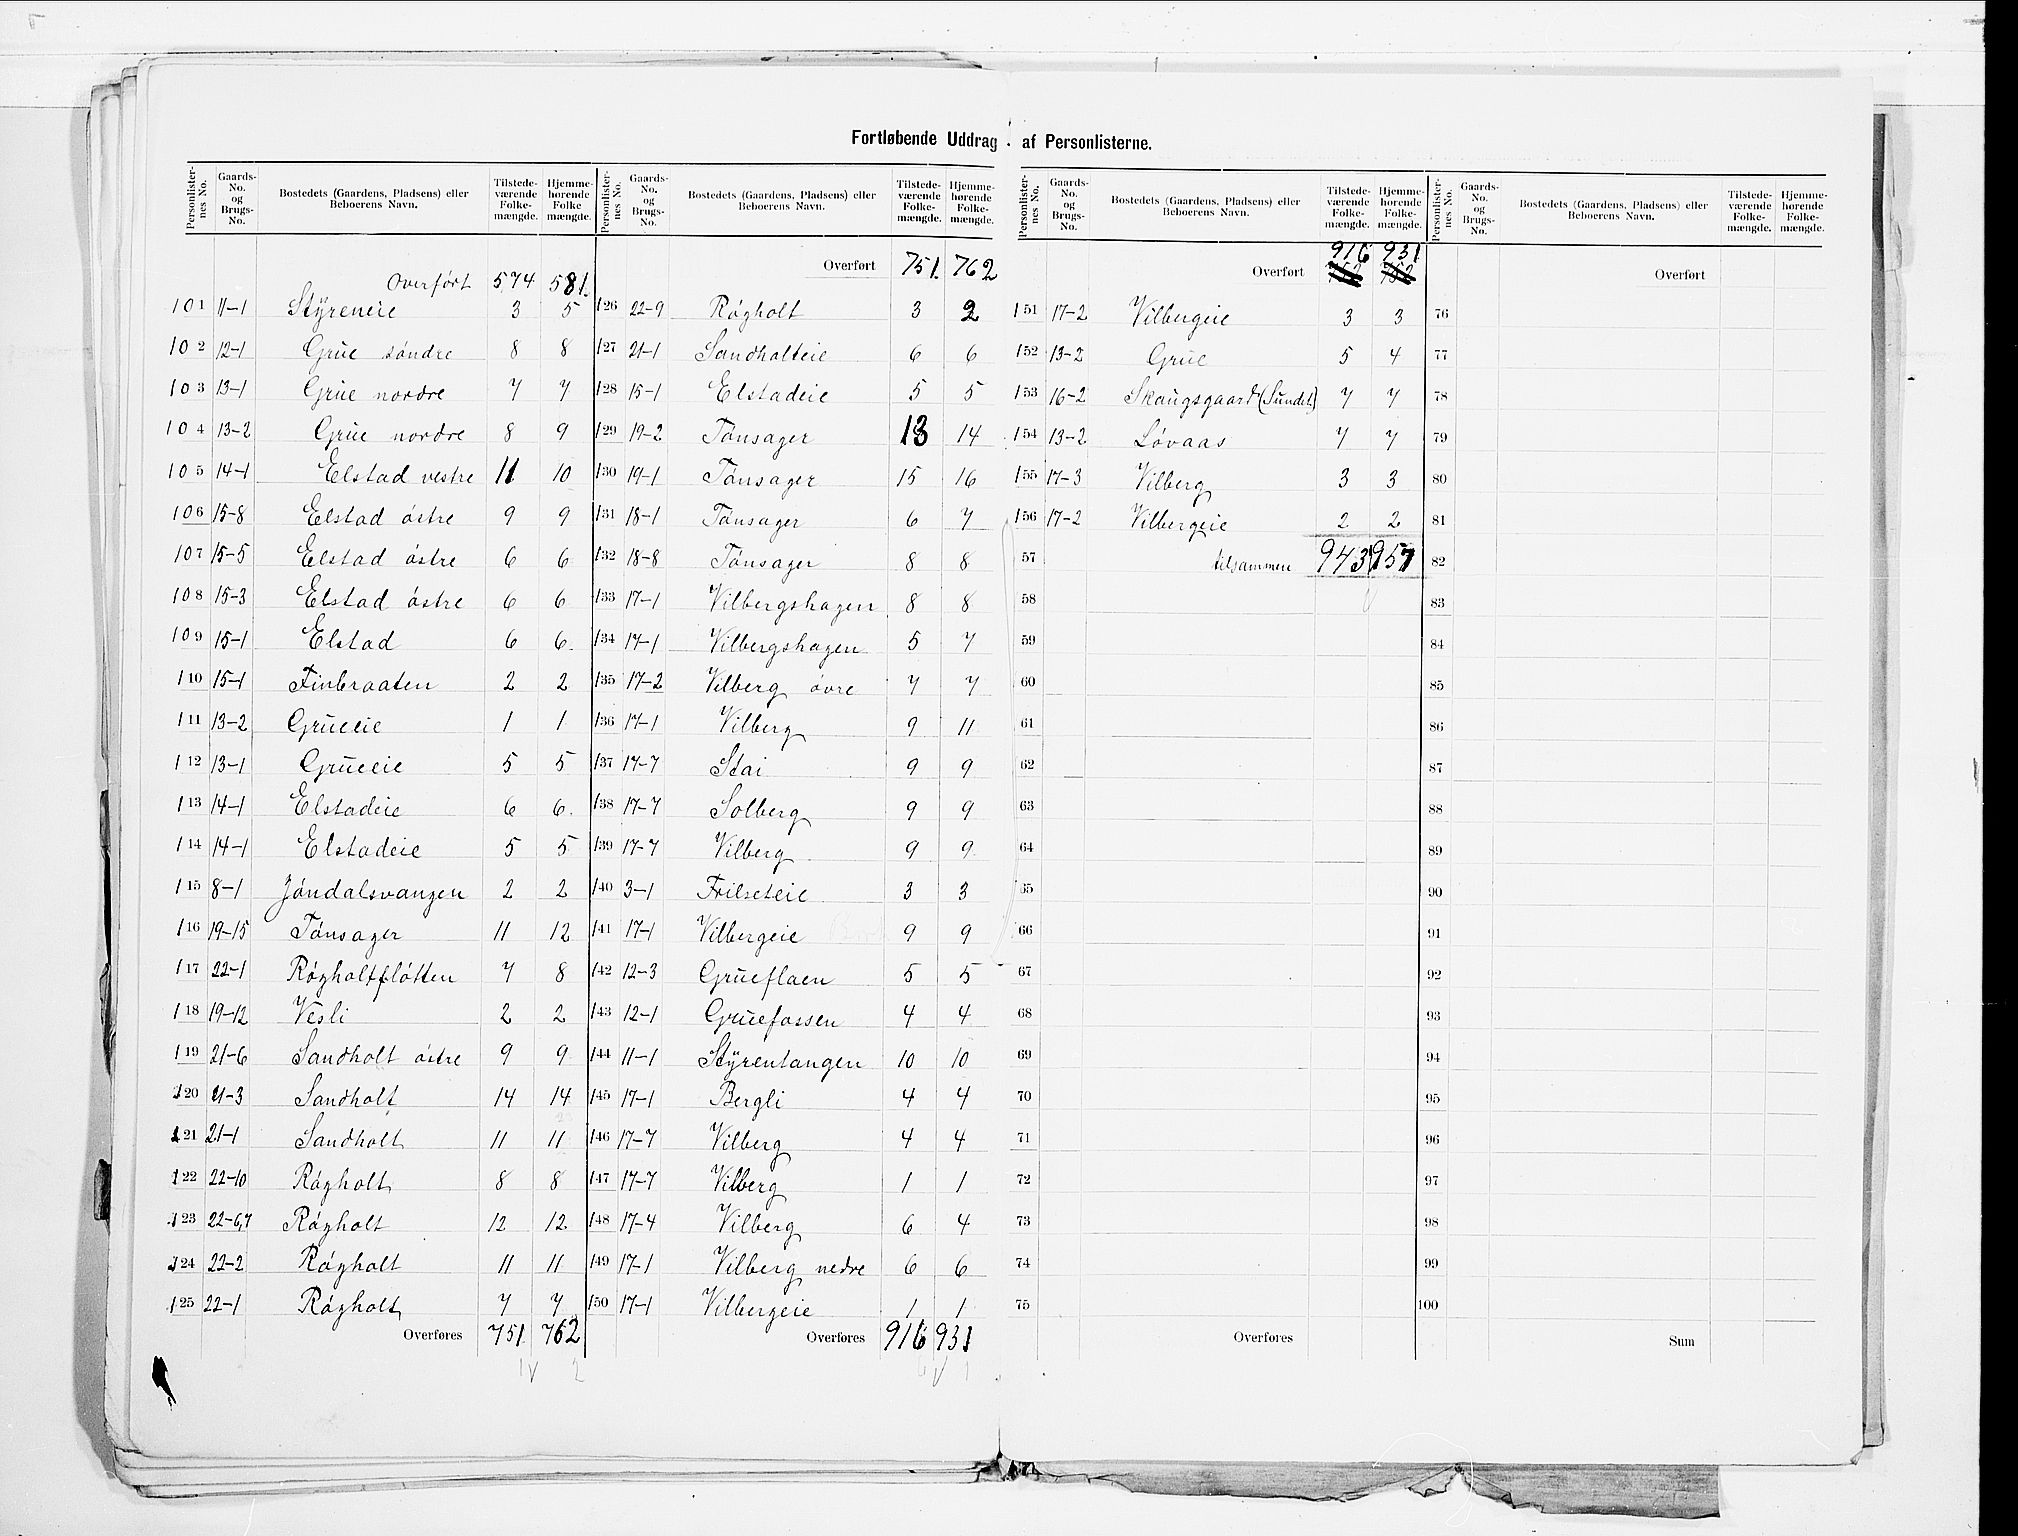 Fortløbende Uddrag af Personlisternes.
Personlister-nes No. Gaards-No. og Brugs-No. Bostedets (Gaardens, Pladsens) eller Beboerens Navn. Tilstede-værende Folke-mængde. Hjemme-hørende Folke mængde.
Overført 574 581.
101 11-1 Styreneie 3 5
102 12-1 Grue søndre 8 8
103 13-1 Grue nordre 7 7
104 13-2 Grue nordre 8 9
105 14-1 Elstad vestre 11 10
106 15-8 Elstad østre 9 9
107 15-5 Elstad østre 6 6
108 15-3 Elstad østre 6 6
109 15-1 Elstad 6 6.
110 15-1 Finbraaten 2 2
111 13-2 Grueeie 1 1
112 13-1 Grueeie 5 5
113 14-1 Elstadeie 6 6.
114 14-1 Elstadeie 5 5
115 8-1 Jøndalsvangen 2 2
116 19-15 Tønsager 11 12
117 22-1 Røgholtfløtten 7 8
118 19-12 Vesli 2 2
119 21-6 Sandholt østre 9 9
120 21-3 Sandholt 14 14
121 21-1 Sandholt 11 11
122 22-10 Røgholt 8 8
123 22-6,7 Røgholt 12 12
124 22-2 Røgholt 11 11
125 22-1 Røgholt 7 7
Overføres 751. 762
Personlister-nes No. Gaards-No. og Brugs-No. Bostedets (Gaardens, Pladsens) eller Beboerens Navn. Tilstede-værende Folke-mængde. Hjemme-hørende Folke-mængde.
Overført 751. 762
126 22-9 Røgholt 3 2
127 21-1 Sandholteie 6 6
128 15-1 Elstadeie 5 5
129 19-2 Tønsager 13 14
130 19-1 Tønsager 15 16
131 18-1 Tønsager 6 7
132 18-8 Tønsager 8 8
133 17-1 Vilbergshagen 8 8
134 17-1 Vilbergshagen 5 7
135 17-2 Vilberg øvre 7 7
136 17-1 Vilberg 9 11
137 17-7 Stai 9 9
138 17-7 Solberg 9 9
139 17-7 Vilberg 9 9
140 3-1 Frilseteie 3 3
141 17-1 Vilbergeie 9 9
142 12-3 Grueflaen 5 5
143 12-1 Gruefossen 4 4
144 11-1 Styrentangen 10 10
145 17-1 Bergli 4 4
146 17-7 Vilberg 4 4
147 17-7 Vilberg 1 1
148 17-4 Vilberg 6 4
149 17-1 Vilberg nedre 6 6
150 17-1 Vilbergeie 1 1
Overføres 916 931
Personlister-nes No. Gaards-No. og Brugs-No. Bostedets (Gaardens, Pladsens) eller Beboerens Navn. Tilstede-værende Folke-mængde. Hjemme-hørende Folke-mængde.
916 931
Overført 752 752
151 17-2 Vilbergeie 3 3
152 13-2 Grue 5 4
153 16-2 Skaugsgaard (Sundet) 7 7
154 13-2 Løvaas 7 7
155 17-3 Vilberg 3 3
156 17-2 Vilbergeie 2 2
57 tilsammen 943 957
58
59
60
61
62
63
64
65
66
67
68
69
70
71
72
73
74
75
Overføres
Personlister-nes No. Gaards-No. og Brugs-No. Bostedets (Gaardens, Pladsens) eller Beboerens Navn. Tilstede-værende Folke-mængde. Hjemme-hørende Folke-mængde.
Overført
76
77
78
79
80
81
82
83
84
85
86
87
88
89
90
91
92
93
94
95
96
97
98
99
100
Sum